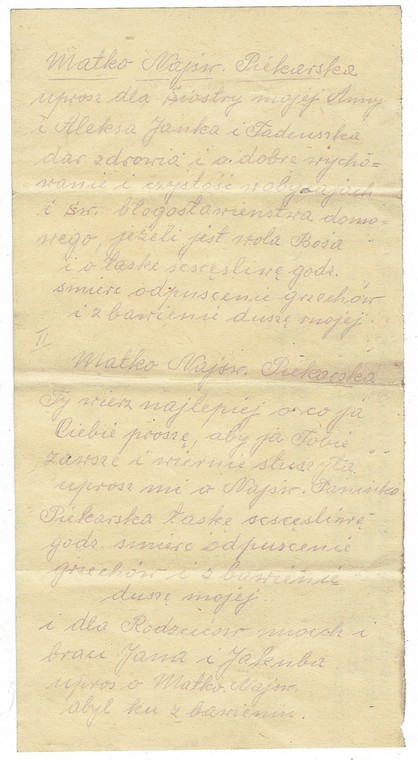 Matko Najśw. Piekarska
uprosz dla siostry mojej Anny
i Aleksa Janka i Tadeuszka
dar zdrowia i o dobre wycho-
wanie i czystość w obyczajach
i św. błogosławieństwa domo-
wego, jeżeli jest wola Boża
i o łaske scsęsliwę godz.
śmierc odpuscenie grzechów
i zbawienie duszę mojej
II
Matko Najśw. Piekarska
Ty wiesz najlepiej o co ja
Ciebie proszę, aby ja Tobie
zawsze i wiernie służyła
uprosz mi o Najśw. Panienko
Piekarska łaskę scsęsliwę
godz. śmierc odpuscenie
grzechów i zbawienie
duszę mojej
i dla Rodziców mioch i
braci Jana i Jakuba
upros o Matko Najśw.
abyl ku zbawieniu.